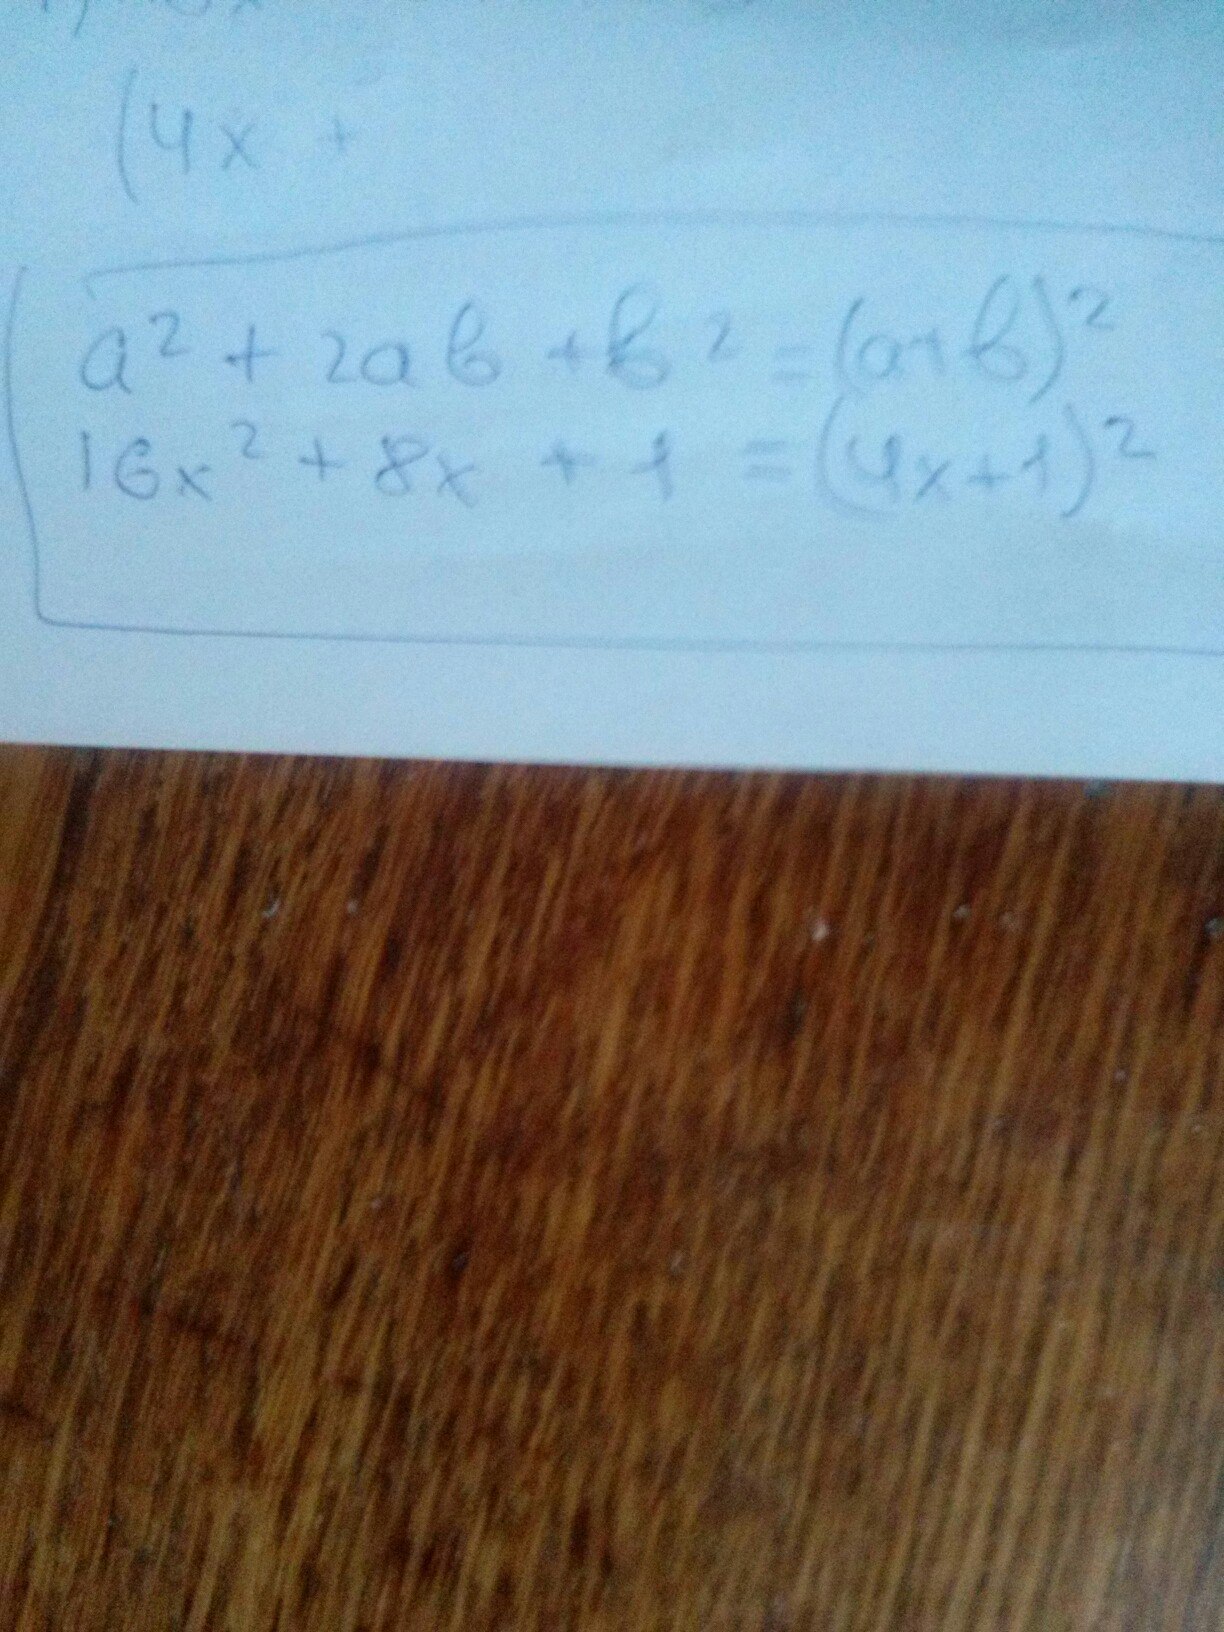 (4x +
a² + 2ab + b² = (a+b)²
16x² + 8x + 1 = (4x+1)²